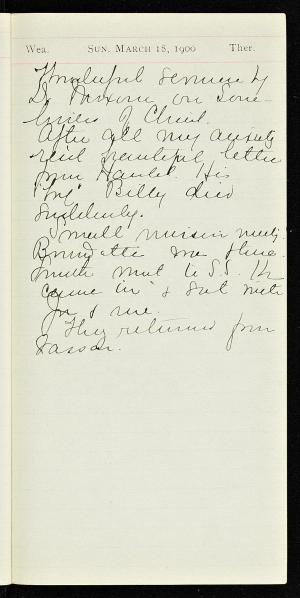 Wea. SUN. MARCH 18, 1900 Ther.
Wonderful sermon by
Dr. on Lone-
liness of Christ.
After all my anxiety
rec'd beautiful letter
from His
" " Billy died
suddenly.
Small mission meet'g.
there.
went to S.S. He
came in & sat with
Jn & me.
They returned from
Nassau.